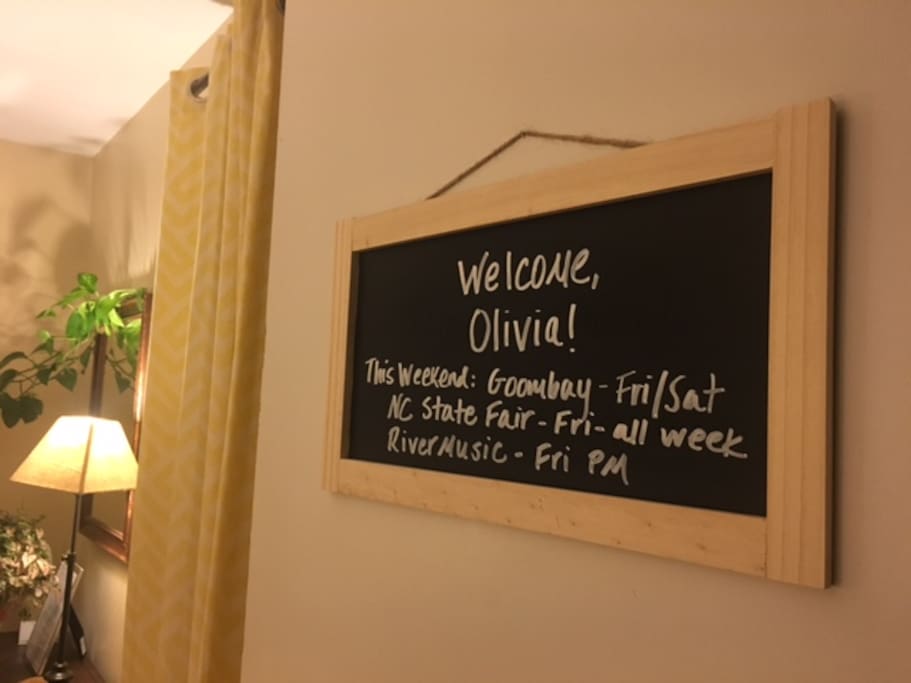 Welcome,
Olivia!
This Weekend: Goombay - Fri/Sat
NC State Fair - Fri - all week
RiverMusic - Fri PM